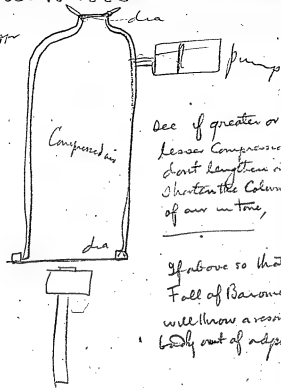 dia
pump
Compressed air
See if greater or
lesser Compression
dont lengthen or
shorten the Column
of air in tone,
dia
If above so that
Fall of Barome
will throw a reso
body out of adj